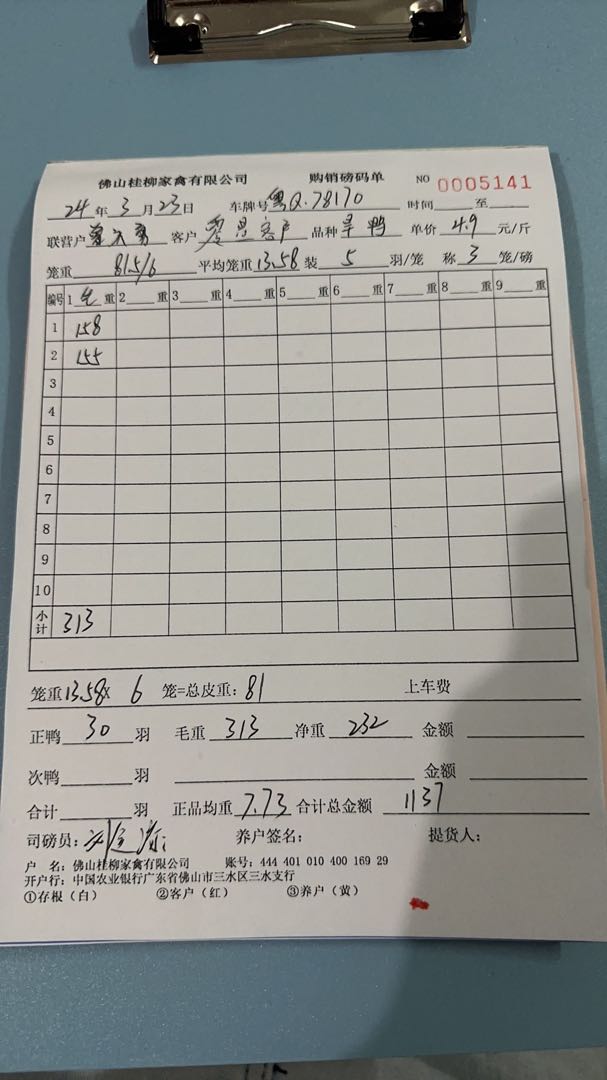 佛山桂柳家禽有限公司 购销磅码单 NO 0005141
24年3月23日 车牌号粤Q.78170 时间 至
联营户 客户 零星客户 品种 旱鸭 单价 4.9 元/斤
笼重 81.5/6 平均笼重13.58 装 5 羽/笼 称 3 笼/磅
编号 1 毛 重 2 重 3 重 4 重 5 重 6 重 7 重 8 重 9 重
1 158
2 155
3
4
5
6
7
8
9
10
小计 313
笼重13.58x 6 笼=总皮重：81 上车费
正鸭 30 羽 毛重 313 净重 232 金额
次鸭 羽 金额
合计 羽 正品均重 7.73 合计总金额 1137
司磅员： 养户签名： 提货人：
户 名：佛山桂柳家禽有限公司 账号：444 401 010 400 169 29
开户行：中国农业银行广东省佛山市三水区三水支行
①存根（白） ②客户（红） ③养户（黄）